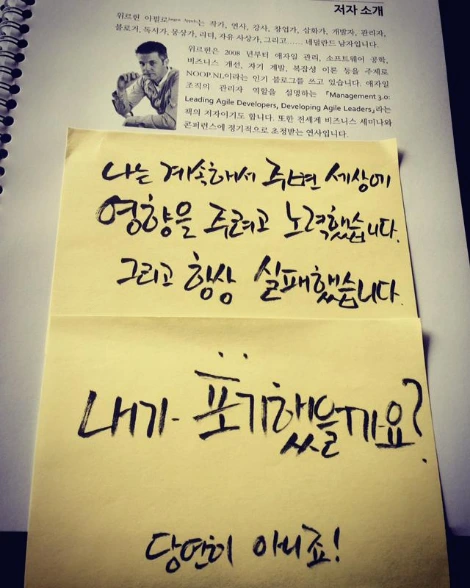 저자 소개
위르헌 아펄로(Jurgen Appelo)는 작가, 연사, 강사, 창업가, 삽화가, 개발자, 관리자,
블로거, 독서가, 몽상가, 리더, 자유 사상가, 그리고…… 네덜란드 남자입니다.
위르헌은 2008 년부터 애자일 관리, 소프트웨어 공학,
비즈니스 개선, 자기 계발, 복잡성 이론 등을 주제로
NOOP.NL이라는 인기 블로그를 쓰고 있습니다. 애자일
조직의 관리자 역할을 설명하는 『Management 3.0:
Leading Agile Developers, Developing Agile Leaders』라는
책의 저자이기도 합니다. 또한 전세계 비즈니스 세미나와
콘퍼런스에 정기적으로 초청받는 연사입니다.
나는 계속해서 주변 세상에
영향을 주려고 노력했습니다.
그리고 항상 실패했습니다.
내가 포기했을까요?
당연히 아니죠!